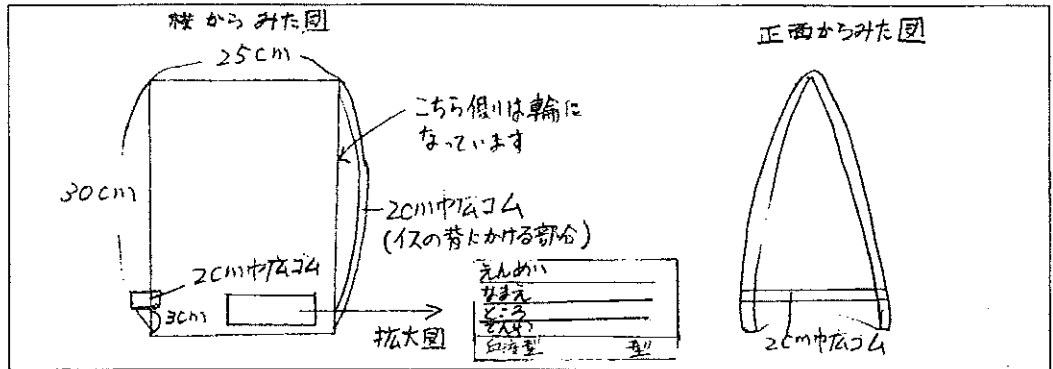 横からみた図
25cm
こちら側は輪に
なっています
30cm
2cm巾広ゴム
(イスの背にかける部分)
2cm巾広ゴム
3cm
拡大図
えんめい
なまえ
ところ
でんわ
血液型 型
正面からみた図
2cm巾広ゴム